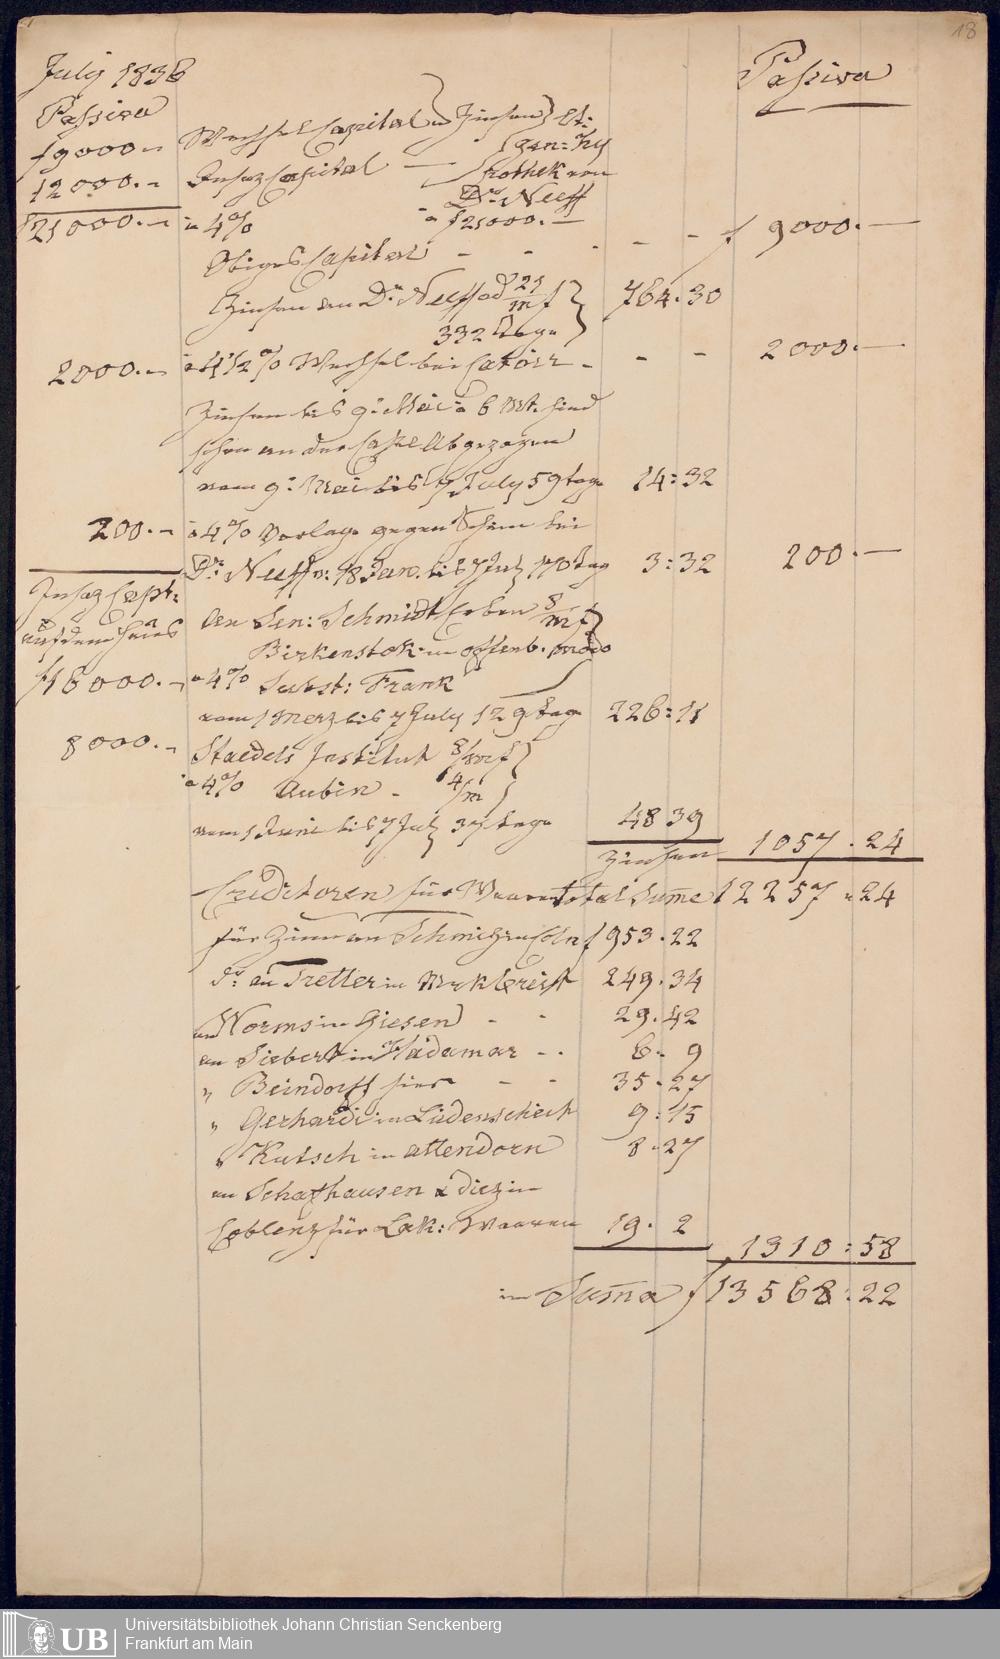 18
July 1836 Passiva
Passiva
f 9000.– Wechsel Capital u Zinsen
12000.– Insaz Capital — pothek von
Dr. Neeff
f 21000.– a 4% a f 21000.–
Obiges Capital - - - - - f 9000.—
Zinsen an Dr. Neeff ad 21/m f 764.30
332 Tage
2000.– a 4 1/2 % Wechsel bei - - - 2000.—
Zinsen bis 9: Mai a 6 Mt. sind
schon an der Abgezogen
vom 9: Mai bis 7 July 59 tage 14:32
200.– a 4% Vorlage gegen Schein bei
Dr. Neeff v: 18 Jan. bis 7 July 170 Tag 3:32 200.—
Insaz Capt:
auf dem Haus
An Sen: Schmidt Erben 8/m f
Birkenstok: modo
f 16000.– a 4% Subst: Frank
vom 1 Merz bis 7 July 129 tage 226:11
8000.– Staedels Institut 8/m f
a 4% Aubin - 4/m
vom 1 Juni bis 7 July 37 tage 48 39
Zinsen 1057.24
Creditoren für Waaren total Sume 12257.24
für Zinn an Schmitz in Coln f 953.22
do. an Tretter in 249.34
an Worms in Giesen - - 29.42
an Siebert in Hadamar - . 6- 9
" Beindorff hier - - 35.27
" Gerhardi in Lüdenscheid 9:15
" Kutsch in Attendorn 8.27
an Schafhausen & Diez in
Coblenz für Lak: Waaren 19. 2
1310:58
in Suma f 13568.22
Universitätsbibliothek Johann Christian Senckenberg
UB Frankfurt am Main